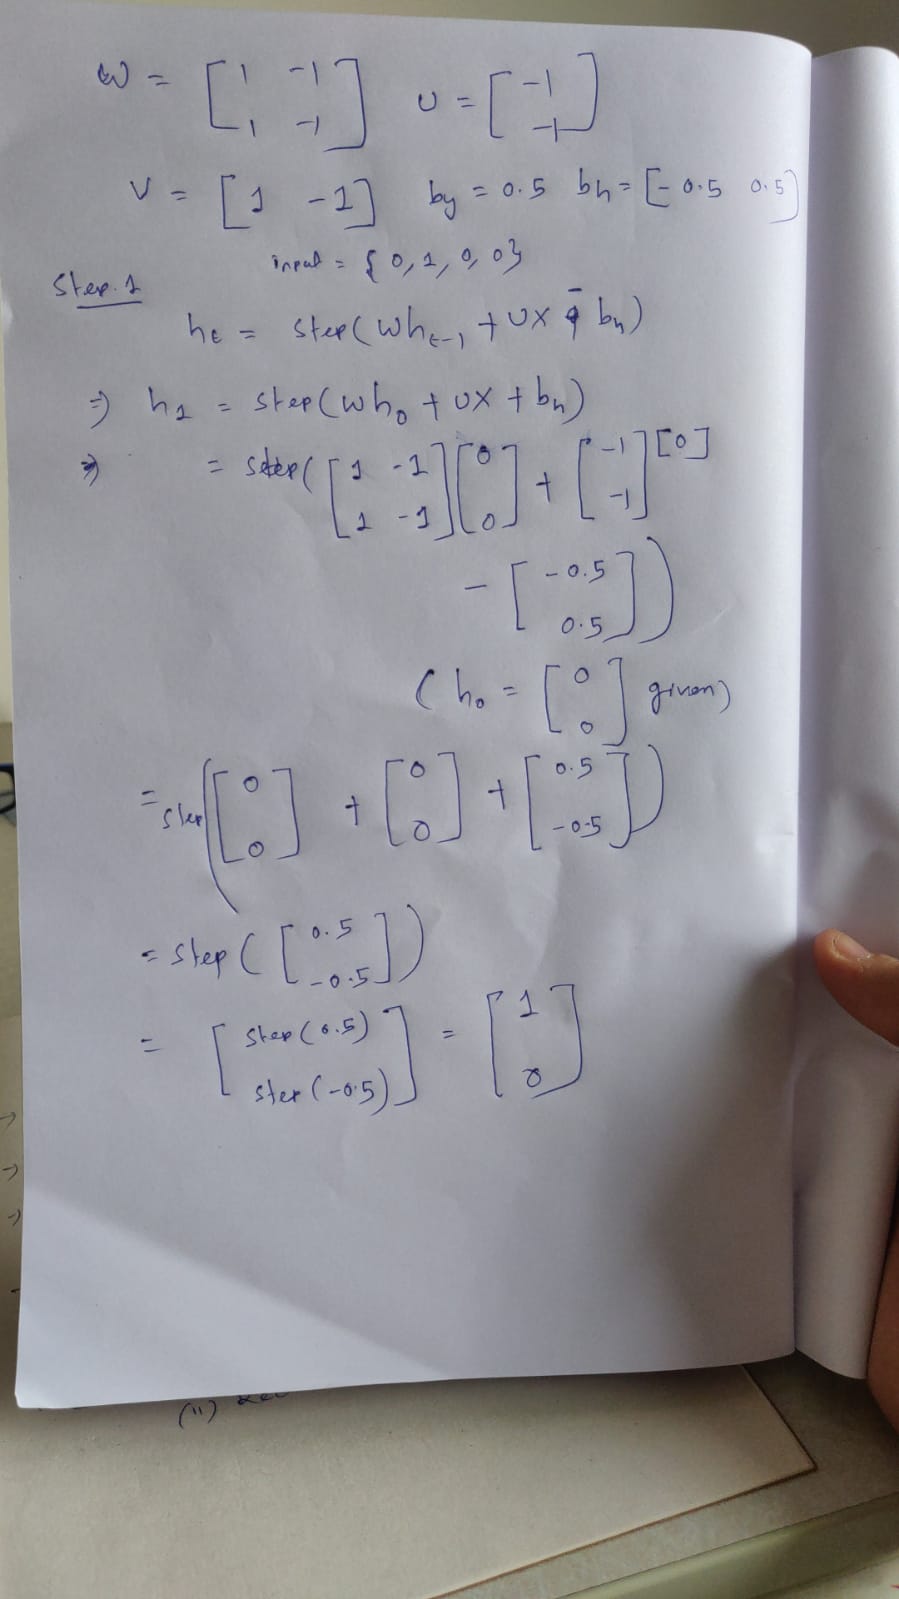 W = [1 -1; 1 -1] U = [-1; -1]
V = [1 -1] by = 0.5 bh = [-0.5 0.5]
input = {0, 1, 0, 0}
Step. 1
ht = step(Wht-1 + UX - bh)
⇒ h1 = step(wh0 + UX + bh)
⇒ = step([1 -1; 1 -1][0; 0] + [-1; -1][0]
- [-0.5; 0.5])
(h0 = [0; 0] given)
= step([0; 0] + [0; 0] + [0.5; -0.5])
= step([0.5; -0.5])
= [step(0.5); step(-0.5)] = [1; 0]
(ii)